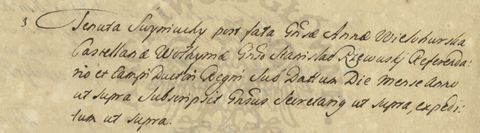 3 Tenuta Suyniucky post fata Gnsæ Annæ Wielohurska
Castellanæ Wołhymæ Gnso Stanislao Rzewusky Referenda-
rio et Campi Ductori Regni Suo Datium Die Mense Anno
ut supra Subscripsit Gnsus Secretariq ut supra, expedi-
tum ut supra.